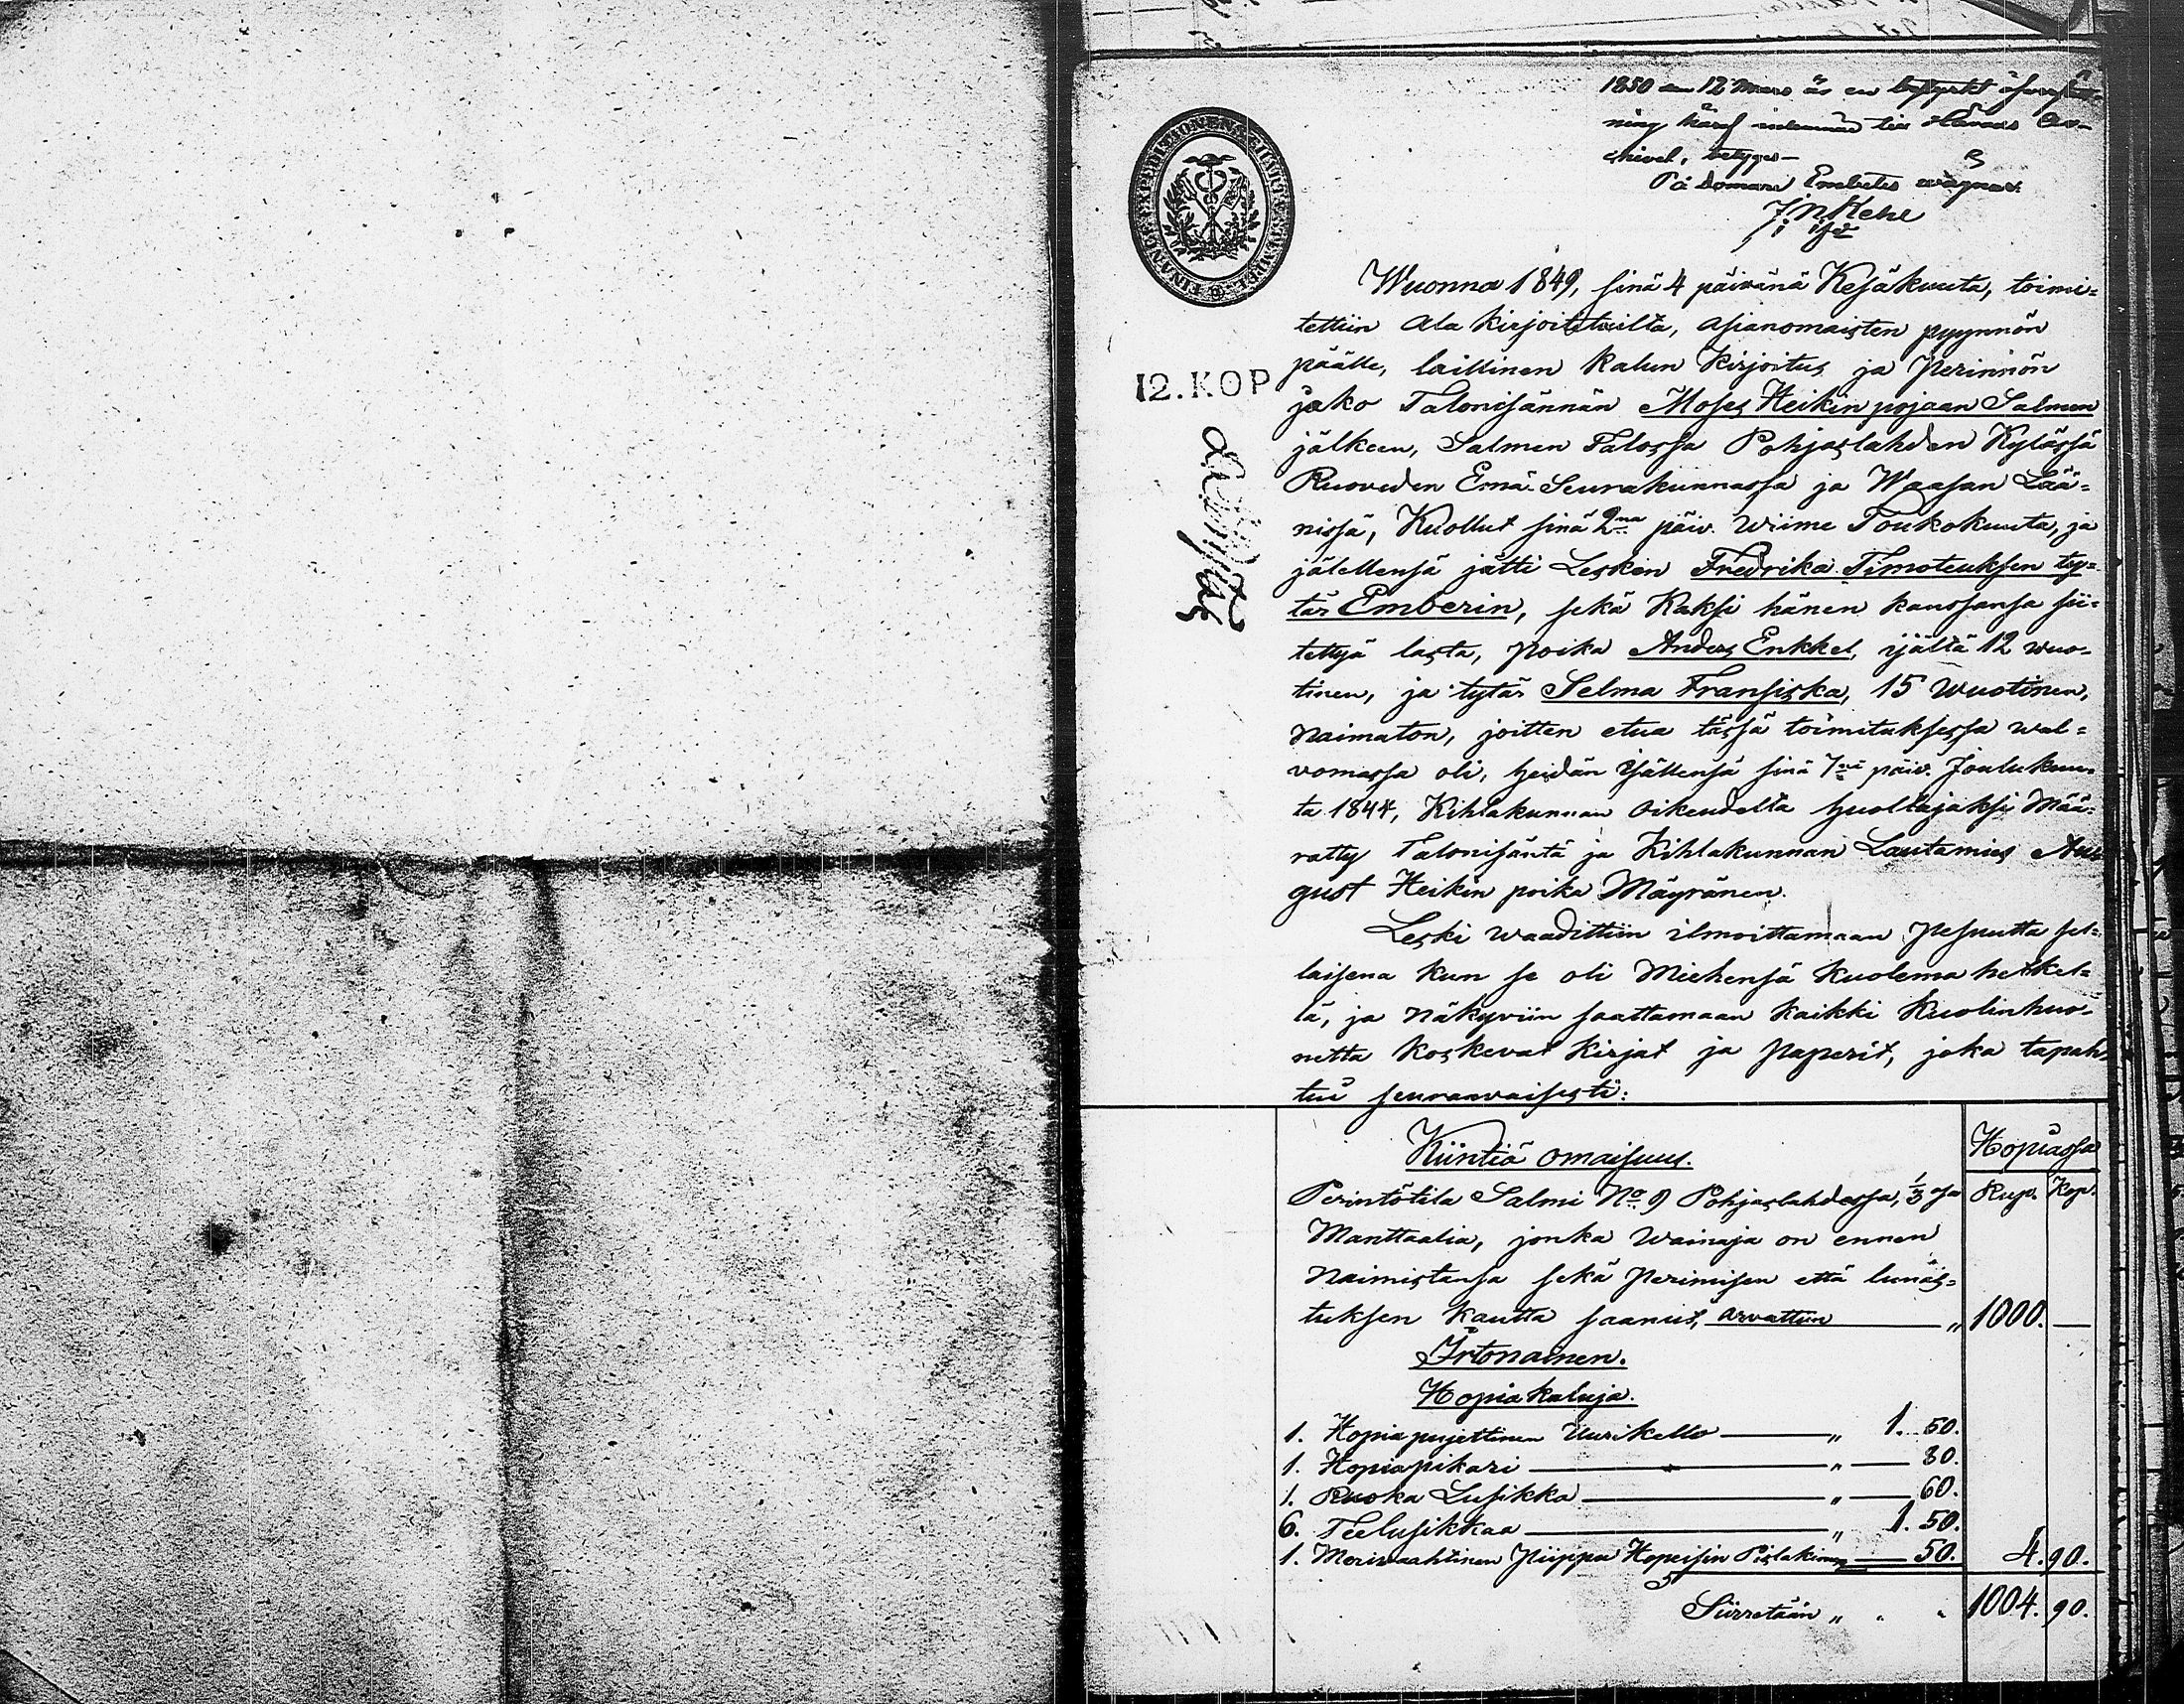 1850 den 12 Mars är en bestyrkt öfversätt-
ning häraf inlemnad till Härads Ar-
chivet, betygas
På Domare Embetes wägnar.
FINANCE EXPEDITIONENS
12. KOP
Wuonna 1849, sinä 4 päivänä Kesäkuuta, toimi-
tettiin ala kirjoitetuilta, asianomaisten pyynnön
päälle, laillinen kalun kirjoitus ja perinnön
jako Talonisännän Moses Heikin pojaan Salmen
jälkeen, Salmen Talossa Pohjaslahden Kylässä
Ruoveden Emä-Seurakunnassa ja Waasan Lää-
nissä, Kuollut sinä 2na päiv. wiime Toukokuuta, ja
jälellensä jätti Lesken Fredrika Timoteuksen ty-
tär Emberin, sekä Kaksi hänen kanssansa sii-
tettyä lasta, poika Anders Enkkel, ijältä 12 wuo-
tinen, ja tytär Selma Fransiska, 15 Wuotinen,
naimaton, joitten etua tässä toimituksessa wal-
vomassa oli, heidän Isällensä sinä 7nä päiv. Jouluku-
ta 1844, Kihlakunnan Oikeudelta huoltajaksi Mää-
rätty Talonisäntä ja Kihlakunnan Lautamies Au-
gust Heikin poika Mäyränen.
Leski waadittiin ilmoittamaan pesuutta sel-
laisena kun se oli Miehensä kuolema hetkel-
lä, ja näkyviin saattamaan kaikki Kuolinhuo-
netta koskevat kirjat ja paperit, joka tapah-
tui seuraavaisesti:
Kiintiä omaisuus.
Hopiassa
Rup. Kop.
Perintötila Salmi No 9 Pohjaslahdessa, 1/3 osa
Manttaalia, jonka wainaja on ennen
Naimistansa sekä perimisen että lunas-
tuksen kautta saanut, arvattiin " 1000. —
Irtonainen.
Hopia kaluja.
1. Hopia pujettinen Uurikello — " 1. 50.
1. Hopiapikari — " — 80.
1. Ruoka Lusikka — " — 60.
6. Teelusikkaa — " 1. 50.
1. Merivaahtinen Piippu Hopeisin — 50. 4. 90.
Siirretään " " " 1004. 90.